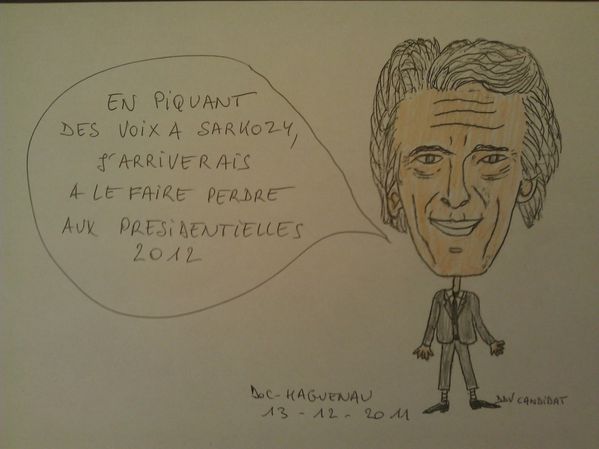 EN PIQUANT
DES VOIX A SARKOZY,
J'ARRIVERAIS
A LE FAIRE PERDRE
AUX PRESIDENTIELLES
2012
DOC-HAGUENAU
13-12-2011
DDV CANDIDAT